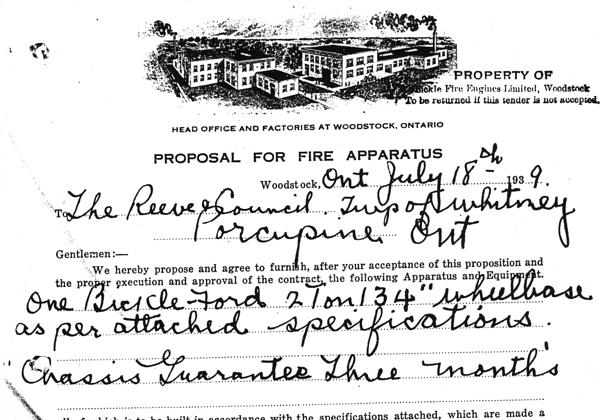 PROPERTY OF
Bickle Fire Engines Limited, Woodstock
To be returned if this tender is not accepted.
HEAD OFFICE AND FACTORIES AT WOODSTOCK, ONTARIO
PROPOSAL FOR FIRE APPARATUS
Woodstock, Ont July 18th 1939.
To The Reeve & Council. Twp of Whitney
Porcupine Ont
Gentlemen:—
We hereby propose and agree to furnish, after your acceptance of this proposition and
the proper execution and approval of the contract, the following Apparatus and Equipment.
One Bickle-Ford 2 Ton 134" wheelbase
as per attached specifications.
Chassis Guarantee Three month's
which is to be built in accordance with the specifications attached, which are made a